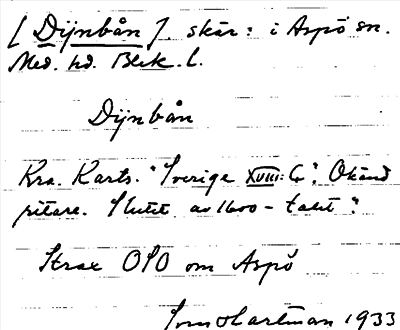 [ Dijnbån ]. skär: i Aspö sn.
Med. hd. Blek. l.
Dijnbån
Kra. Karts. "Sverige XVIII: 6". Okänd
ritare. Slutet av 1600-talet".
Strax OSO om Aspö
Hartman 1933